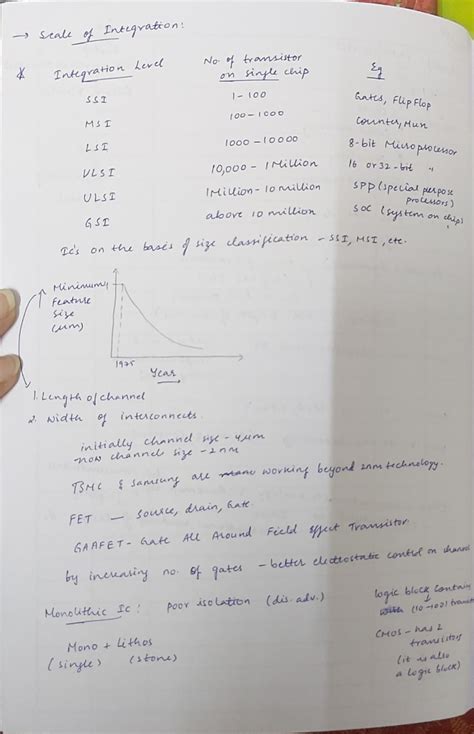 → Scale of Integration:
* Integration Level No. of transistor on single chip Eg
SSI 1-100 Gates, Flip Flop
MSI 100-1000 Counter, Mux
LSI 1000-10000 8-bit Microprocessor
VLSI 10,000 - 1 Million 16 or 32-bit "
ULSI 1 Million - 10 million SPP (special purpose processors)
GSI above 10 million SOC (system on chip)
Ic's on the bases of size classification - SSI, MSI, etc.
Minimum
Feature
Size
(μm)
1975
Year
1. Length of channel
2. Width of interconnects.
initially channel size - 4μm
now channel size - 2nm
TSMC & Samsung are working beyond 2nm technology.
FET — Source, drain, Gate.
GAAFET - Gate All Around Field Effect Transistor.
by increasing no. of gates - better electrostatic control on channel
Monolithic Ic: poor isolation (dis.adv.)
Mono + Lithos
(single) (stone)
logic block contains
(10-100) transit
CMOS - has 2
transistors
(it is also
a logic block)